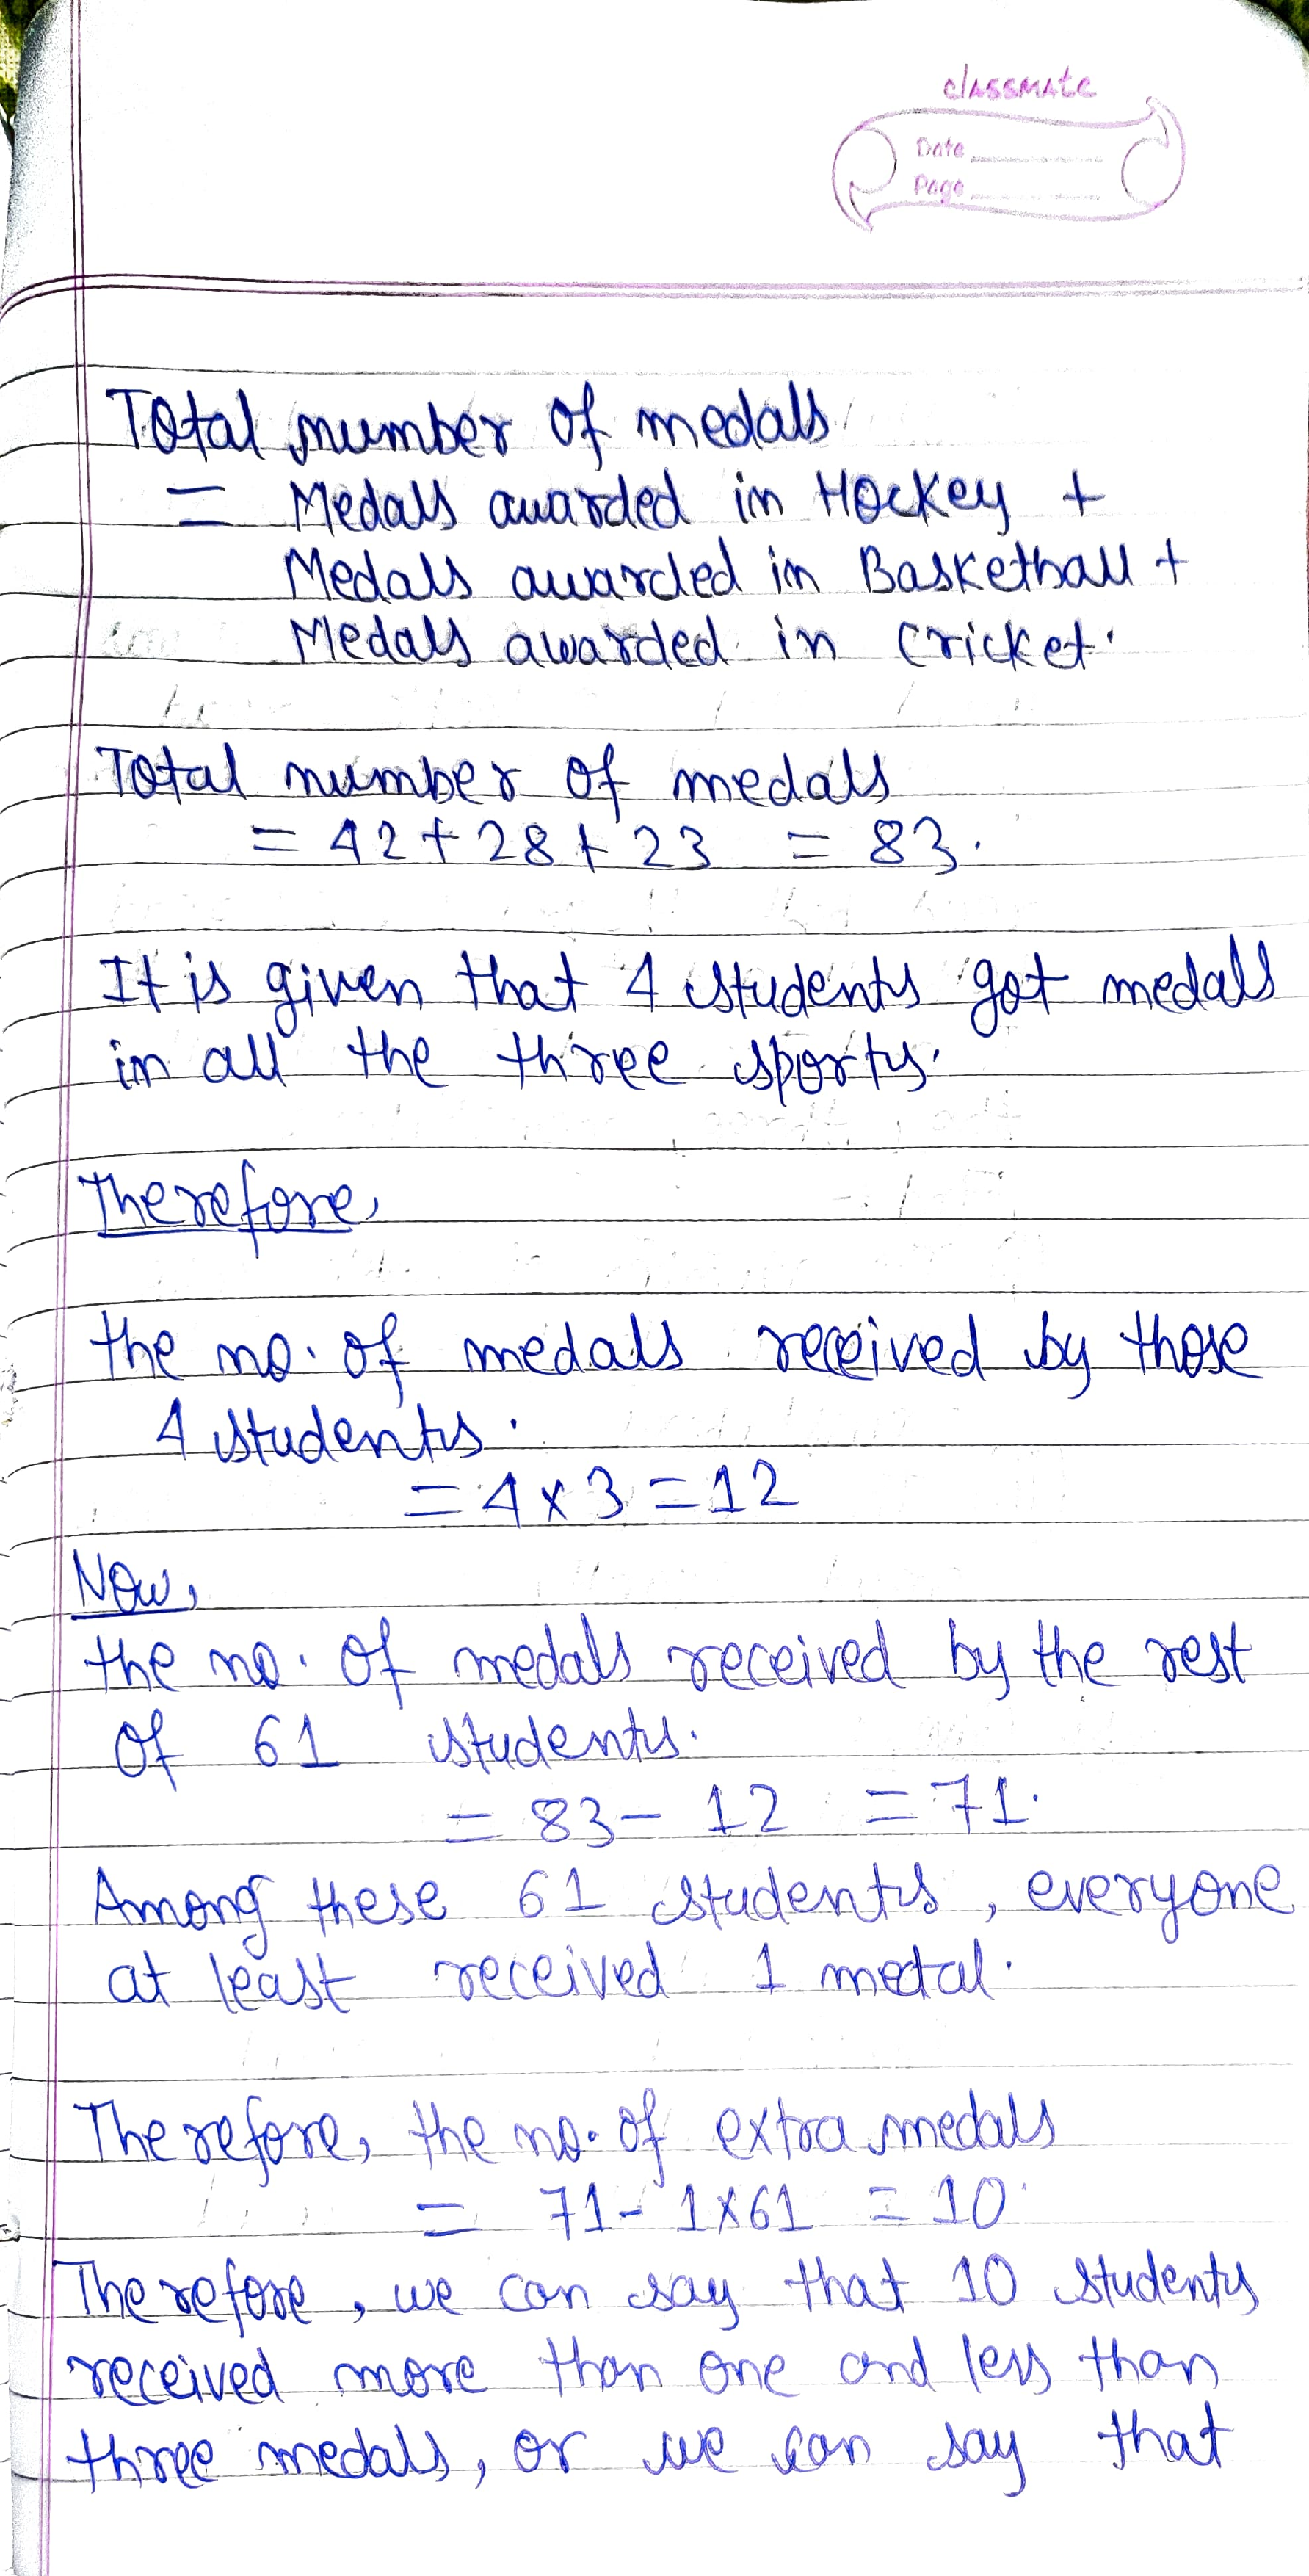 classmate
Date
Page
Total number of medals
= Medals awarded in Hockey +
Medals awarded in Basketball +
Medals awarded in cricket.
Total number of medals
= 42 + 28 + 23 = 83.
It is given that 4 students got medals
in all the three sports.
Therefore,
the no. of medals received by those
4 students.
= 4 x 3 = 12
Now,
the no. of medals received by the rest
of 61 students.
= 83 - 12 = 71.
Among these 61 students, everyone
at least received 1 metal.
Therefore, the no. of extra medals
= 71 - 1 x 61 = 10.
Therefore, we can say that 10 students
received more than one and less than
three medals, or we can say that